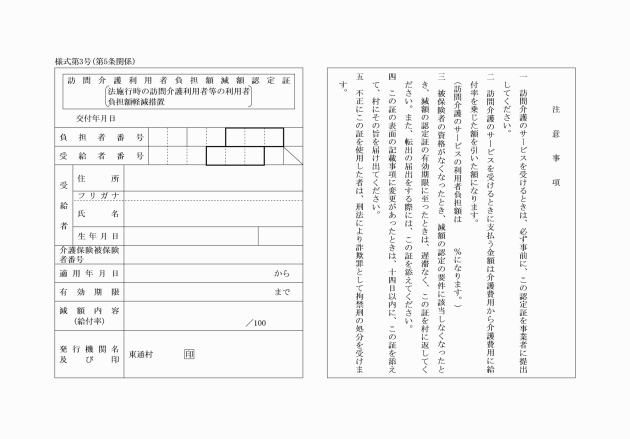 様式第3号(第5条関係)
訪問介護利用者負担額減額認定証
法施行時の訪問介護利用者等の利用者
負担額軽減措置
交付年月日
負担者番号
受給者番号
受給者
住所
フリガナ
氏名
生年月日
介護保険被保険
者番号
適用年月日 から
有効期限 まで
減額内容
(給付率) /100
発行機関名
及び印
東通村 印
注意事項
一 訪問介護のサービスを受けるときは、必ず事前に、この認定証を事業者に提出
してください。
二 訪問介護のサービスを受けるときに支払う金額は介護費用から介護費用に給
付率を乗じた額を引いた額になります。
(訪問介護のサービスの利用者負担額は %になります。)
三 被保険者の資格がなくなったとき、減額の認定の要件に該当しなくなったと
き、減額の認定証の有効期限に至ったときは、遅滞なく、この証を村に返してく
ださい。また、転出の届出をする際には、この証を添えてください。
四 この証の表面の記載事項に変更があったときは、十四日以内に、この証を添え
て、村にその旨を届け出てください。
五 不正にこの証を使用した者は、刑法により詐欺罪として拘禁刑の処分を受けま
す。